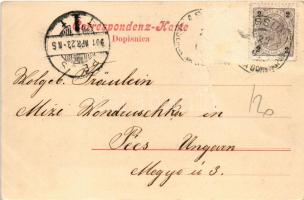 Correspondenz-Karte
Dopisnica
PÉCS
901 APR. 22
2 2
Wolgeb. Fräulein
Mizi Wonduschka in
Pécs Ungarn
Megye ú 3.